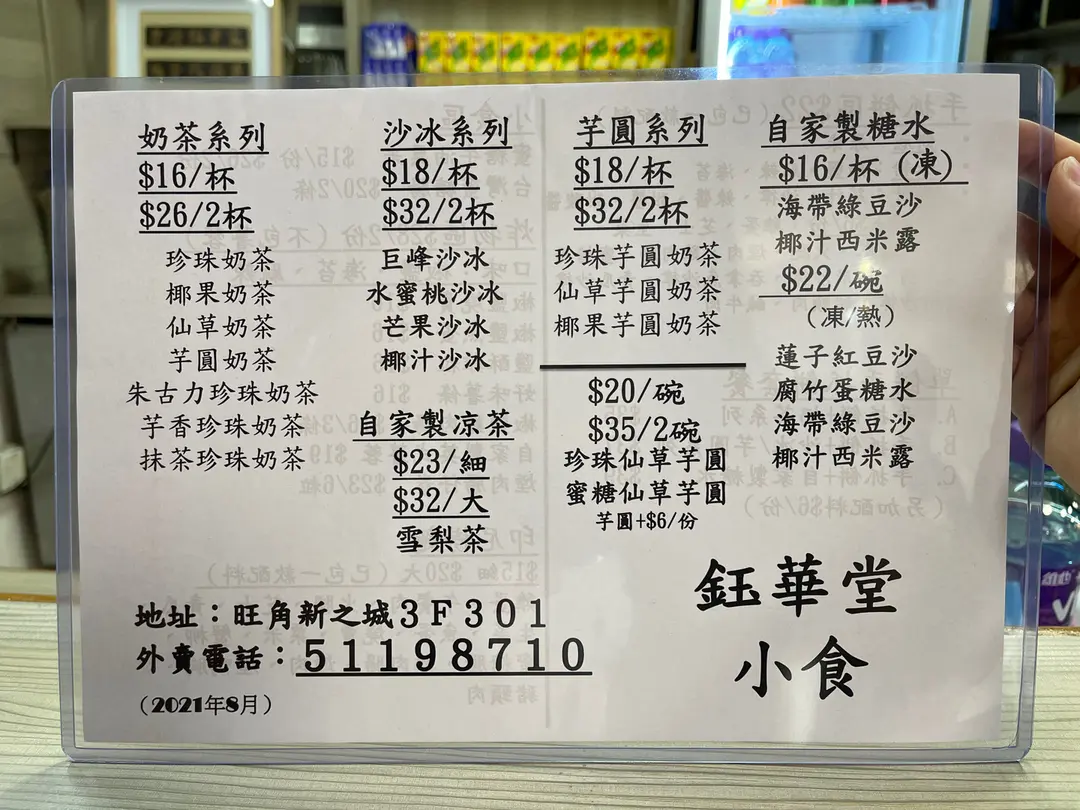 奶茶系列
$16/杯
$26/2杯
珍珠奶茶
椰果奶茶
仙草奶茶
芋圓奶茶
朱古力珍珠奶茶
芋香珍珠奶茶
抹茶珍珠奶茶
沙冰系列
$18/杯
$32/2杯
巨峰沙冰
水蜜桃沙冰
芒果沙冰
椰汁沙冰
自家製凉茶
$23/細
$32/大
雪梨茶
芋圓系列
$18/杯
$32/2杯
珍珠芋圓奶茶
仙草芋圓奶茶
椰果芋圓奶茶
$20/碗
$35/2碗
珍珠仙草芋圓
蜜糖仙草芋圓
芋圓+$6/份
自家製糖水
$16/杯(凍)
海帶綠豆沙
椰汁西米露
$22/碗
(凍/熱)
蓮子紅豆沙
腐竹蛋糖水
海帶綠豆沙
椰汁西米露
鈺華堂
小食
地址：旺角新之城3F301
外賣電話：51198710
(2021年8月)